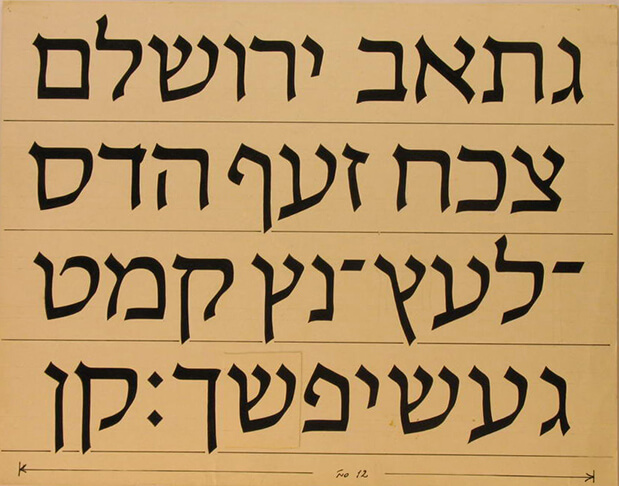 גתאב ירושלם
צכח זעף הדס
־לעץ־נץ קמט
געשיפשך:קן
12 סמ'